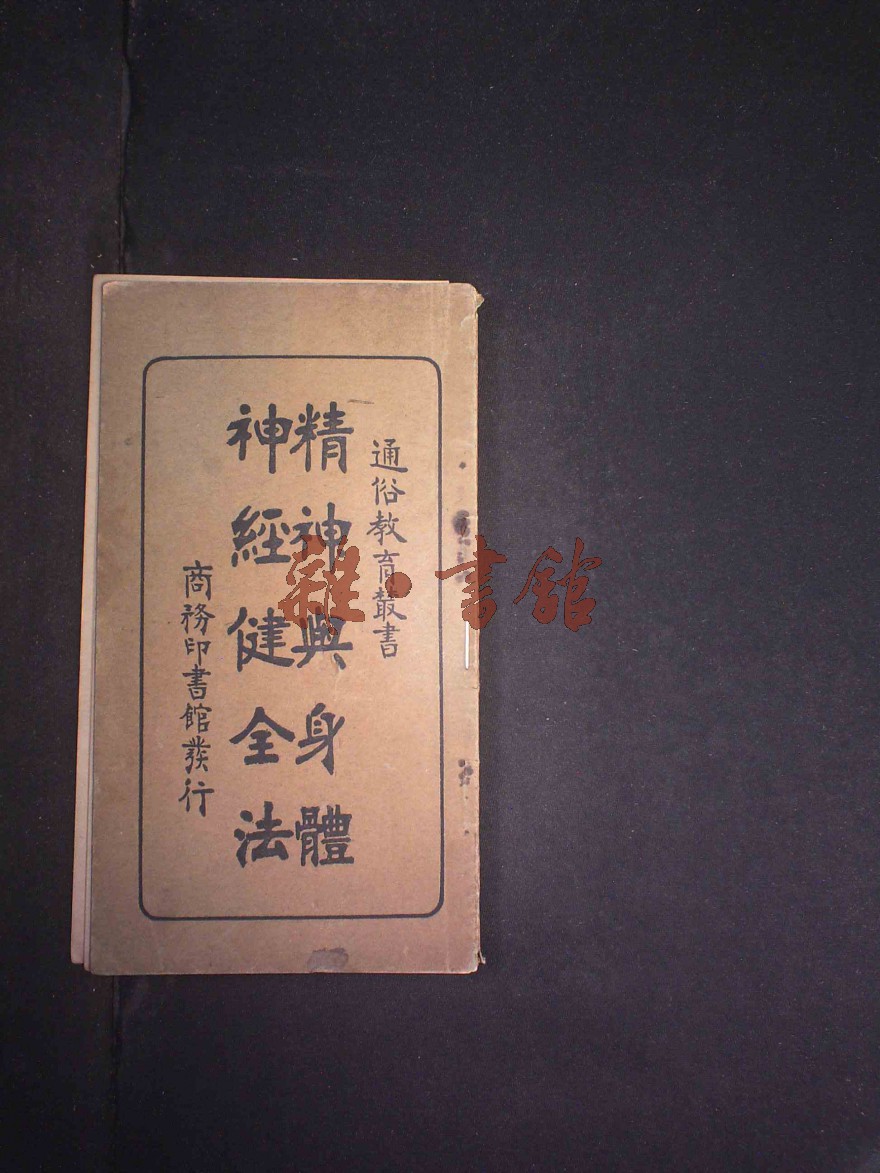 通俗教育叢書
精神與身體
神經健全法
商務印書館發行
雜·書館